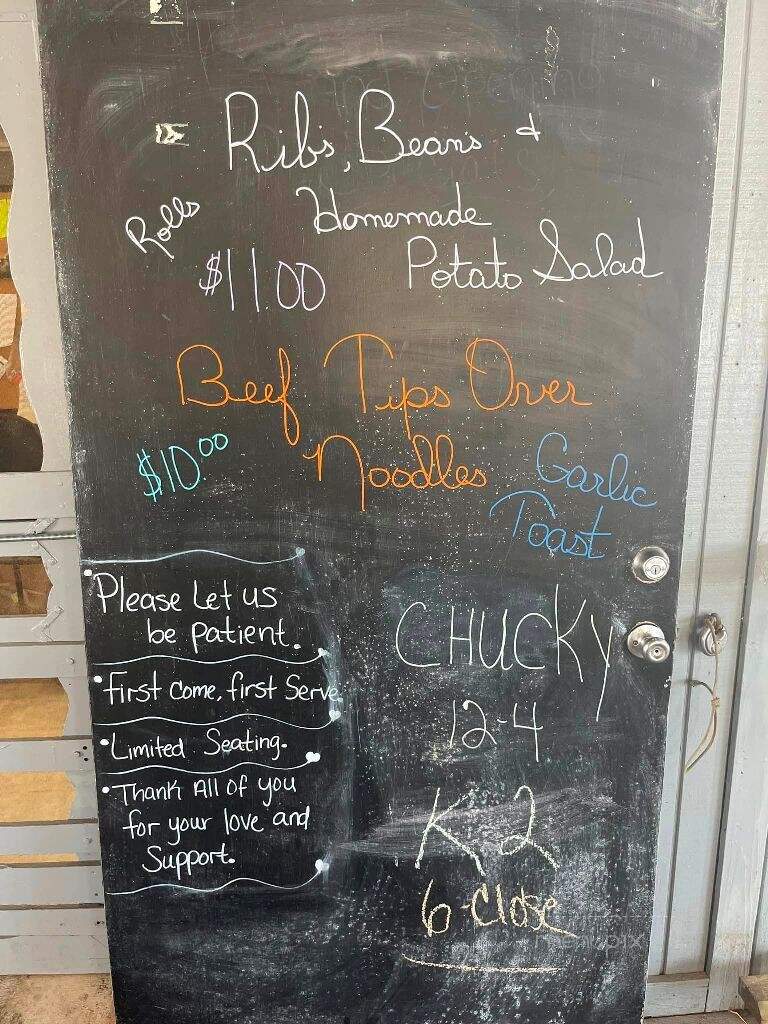 Ribs, Beans &
Homemade
Rolls
$11.00
Potato Salad
Beef Tips Over
Noodles
$10.00
Garlic
Toast
• Please Let us
be patient.
• First come, first Serve
• Limited Seating.
• Thank All of you
for your love and
Support.
CHUCKY
12-4
K2
6-Close